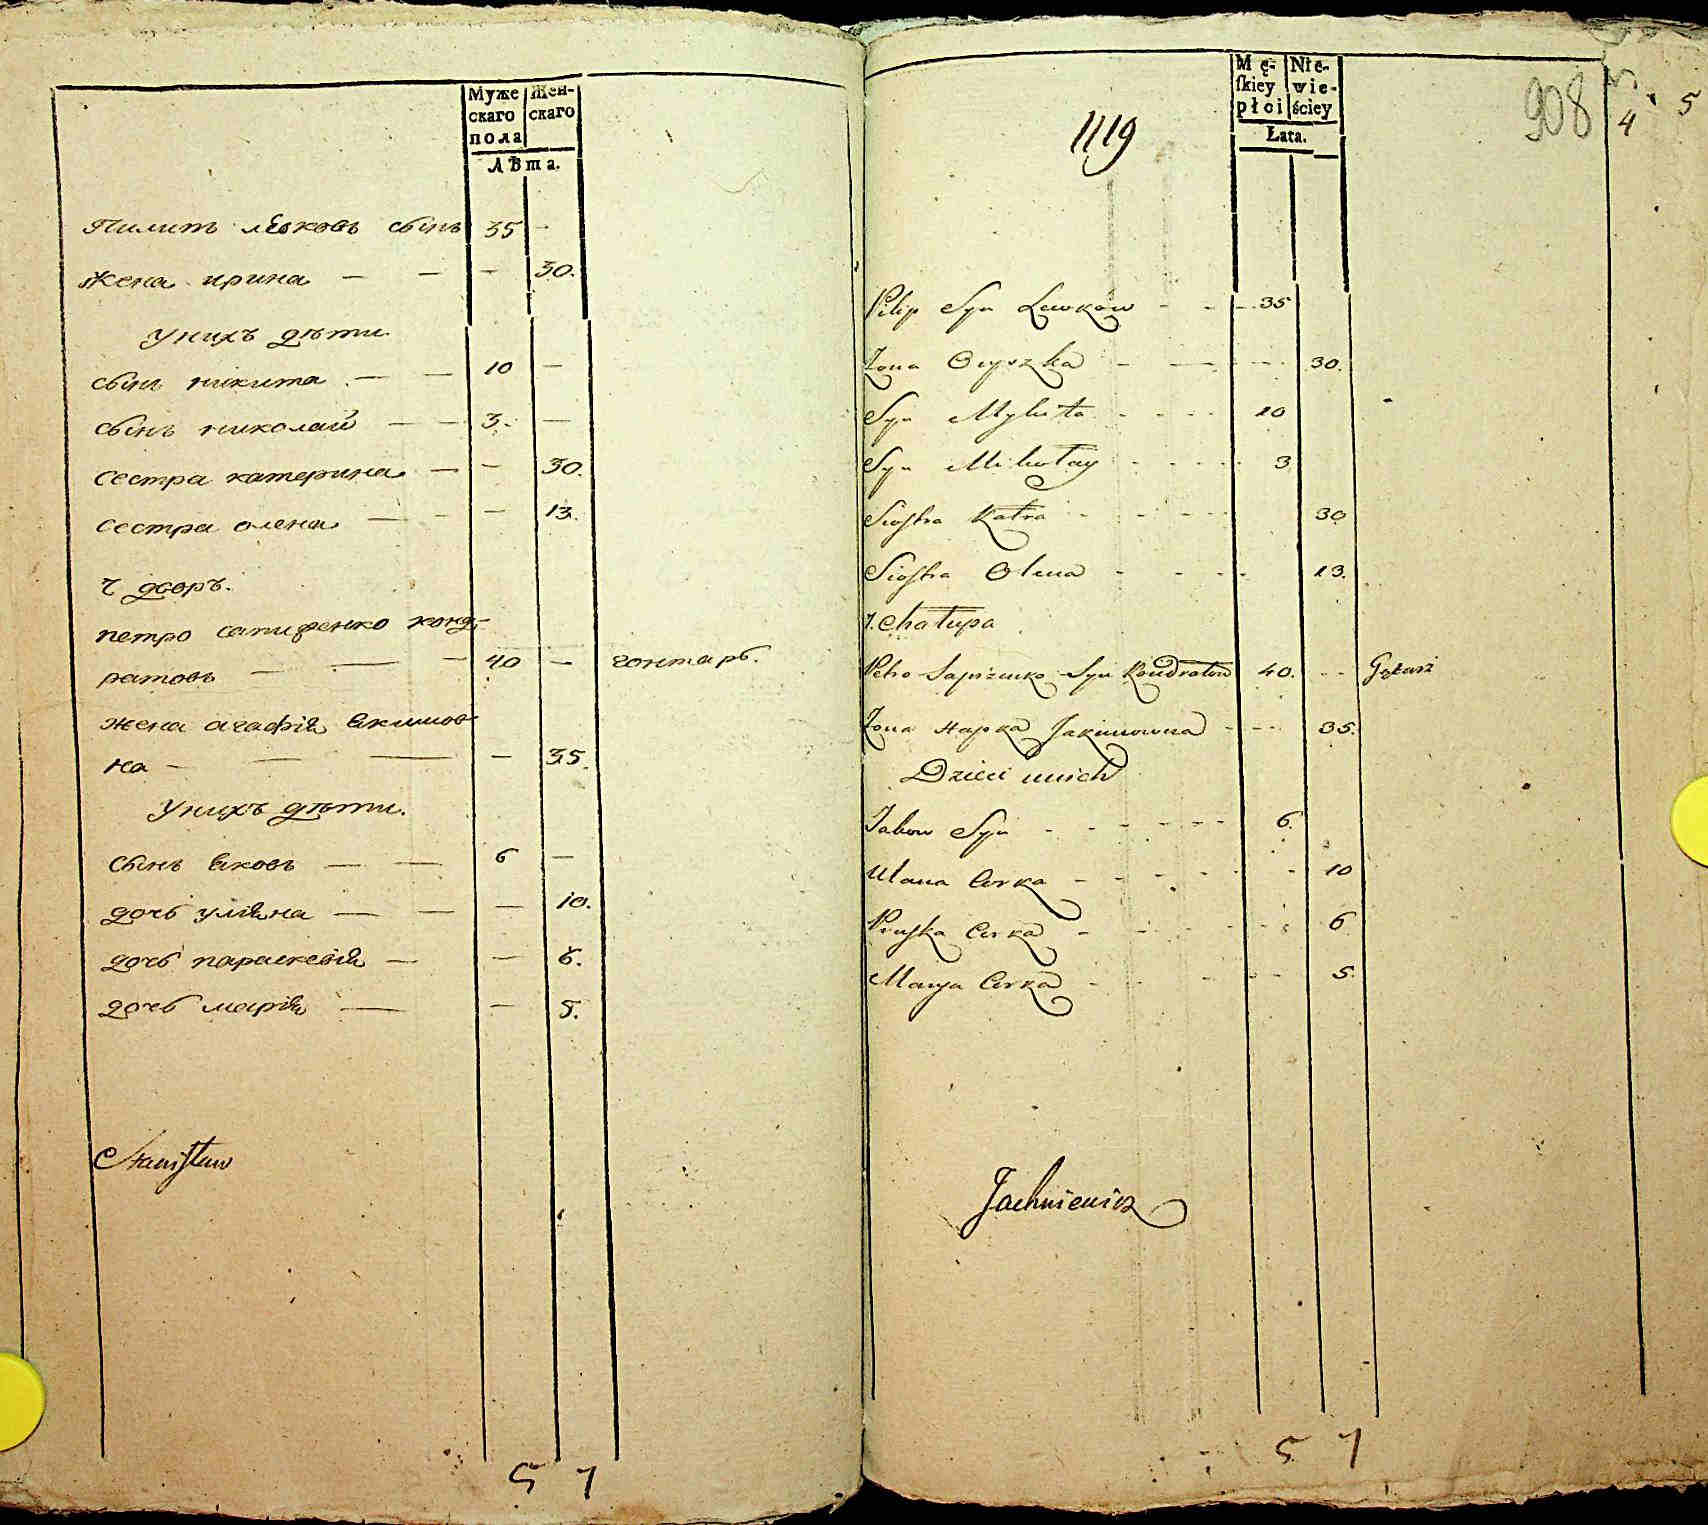 Муже Жен-
скаго скаго
пола
Лѣта.
Пилипъ лѣвковъ сынъ 35 -
жена ирина - - - 30.
унихъ дѣти
сынъ никита - - 10 -
сынъ николай - - 3. -
сестра катерина - - 30.
сестра олена - - - 13.
7 дворъ.
петро сапиженко конд-
ратовъ - - - 40 - гонтарь.
жена агафія якимов
на - - - - 35.
унихъ дѣти.
сынъ яковъ - - 6 -
дочь уліяна - - - 10.
дочь параскевія - - 6.
дочь марія - - 5.
Stanisław
5 7
Mę- Nie-
skiey wie-
płci ściey
Łata.
1119
908
4
5
Pilip Syn Lewkow - - - 35
Żona Oryszka - - - 30.
Syn Mykita - - - - 10
Syn Mikołay - - - - 3
Siostra Katra - - - - 30
Siostra Olena - - - - 13.
7. Chałupa
Petro Sapiżenko Syn Kondratow 40. - - Gątarz
Żona Hapka Jakimowna - - - 35.
Dzieci unich
Jakow Syn - - - - - - 6.
Ulana Corka - - - - - - 10
Pruska Corka - - - - - 6
Marya Corka - - - - - 5.
Jachniewicz
5 7